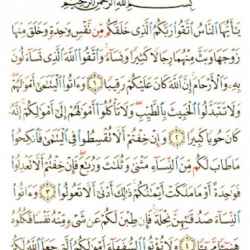 بسم الله الرحمن الرحيم
يأيها الناس اتقوا ربكم الذى خلقكم من نفس وحدة وخلق منها
زوجها وبث منهما رجالا كثيرا ونساء واتقوا الله الذى تساءلون
به والأرحام إن الله كان عليكم رقيبا ١ وءاتوا اليتمى أمولهم
ولا تتبدلوا الخبيث بالطيب ولا تأكلوا أمولهم إلى أمولكم إنه
كان حوبا كبيرا ٢ وإن خفتم ألا تقسطوا فى اليتمى فانكحوا
ما طاب لكم من النساء مثنى وثلث وربع فإن خفتم ألا تعدلوا
فوحدة أو ما ملكت أيمنكم ذلك أدنى ألا تعولوا ٣ وءاتوا
النساء صدقتهن نحلة فإن طبن لكم عن شىء منه نفسا فكلوه
ولا تؤتوا السفهاء أمولكم التى جعل الله لكم